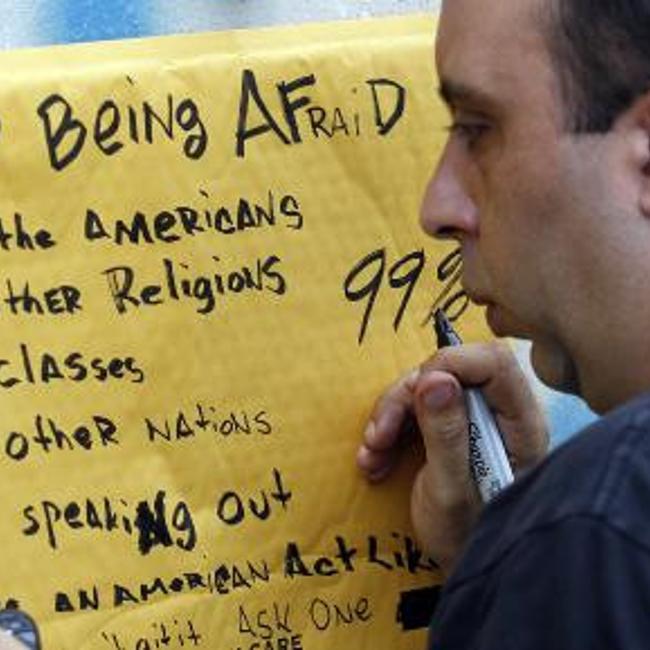 Being AFRAiD
the AMeRicANS
theR Religions
99%
classes
other NAtioNS
speakiNg out
AN AMeRiCAN Act Lik
ASK ONe
CARE
Sharpie